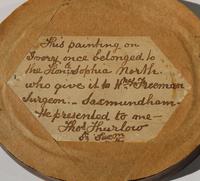 This painting on
Ivory once belonged to
the Hon: Sophia North
who give it to Wm Freeman
Surgeon - Saxmundham -
He presented to me -
Thos Thurlow